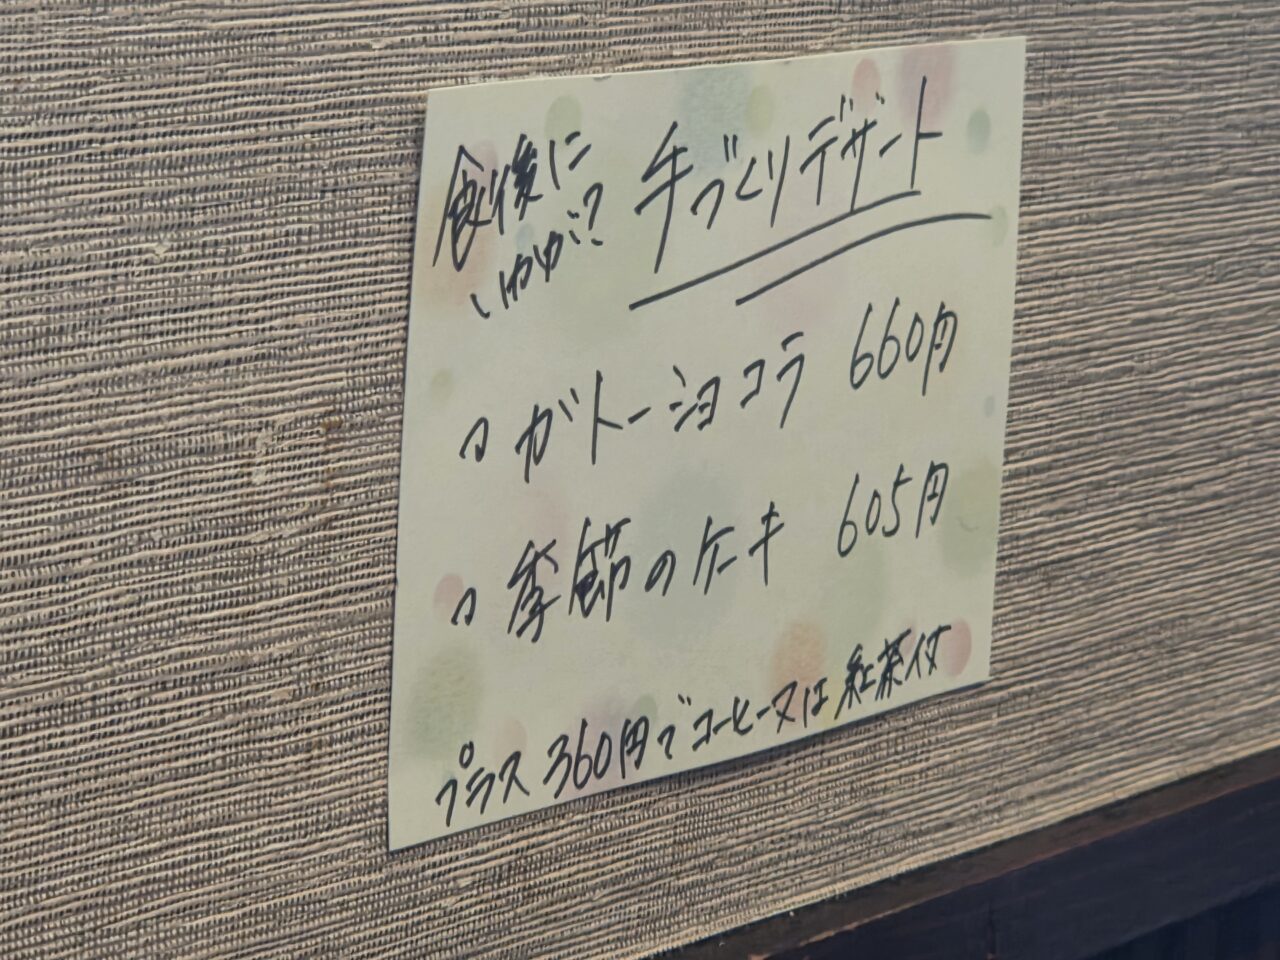 食後に
いかが?
手づくりデザート
ロ ガトーショコラ 660円
ロ 季節のケーキ 605円
プラス360円でコーヒー又は紅茶付